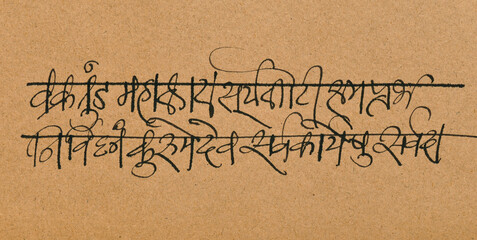 वक्रतुंड महाकाय सूर्यकोटी समप्रभ
निर्विघ्नं कुरुमेदेव सर्वकार्येषु सर्वदा